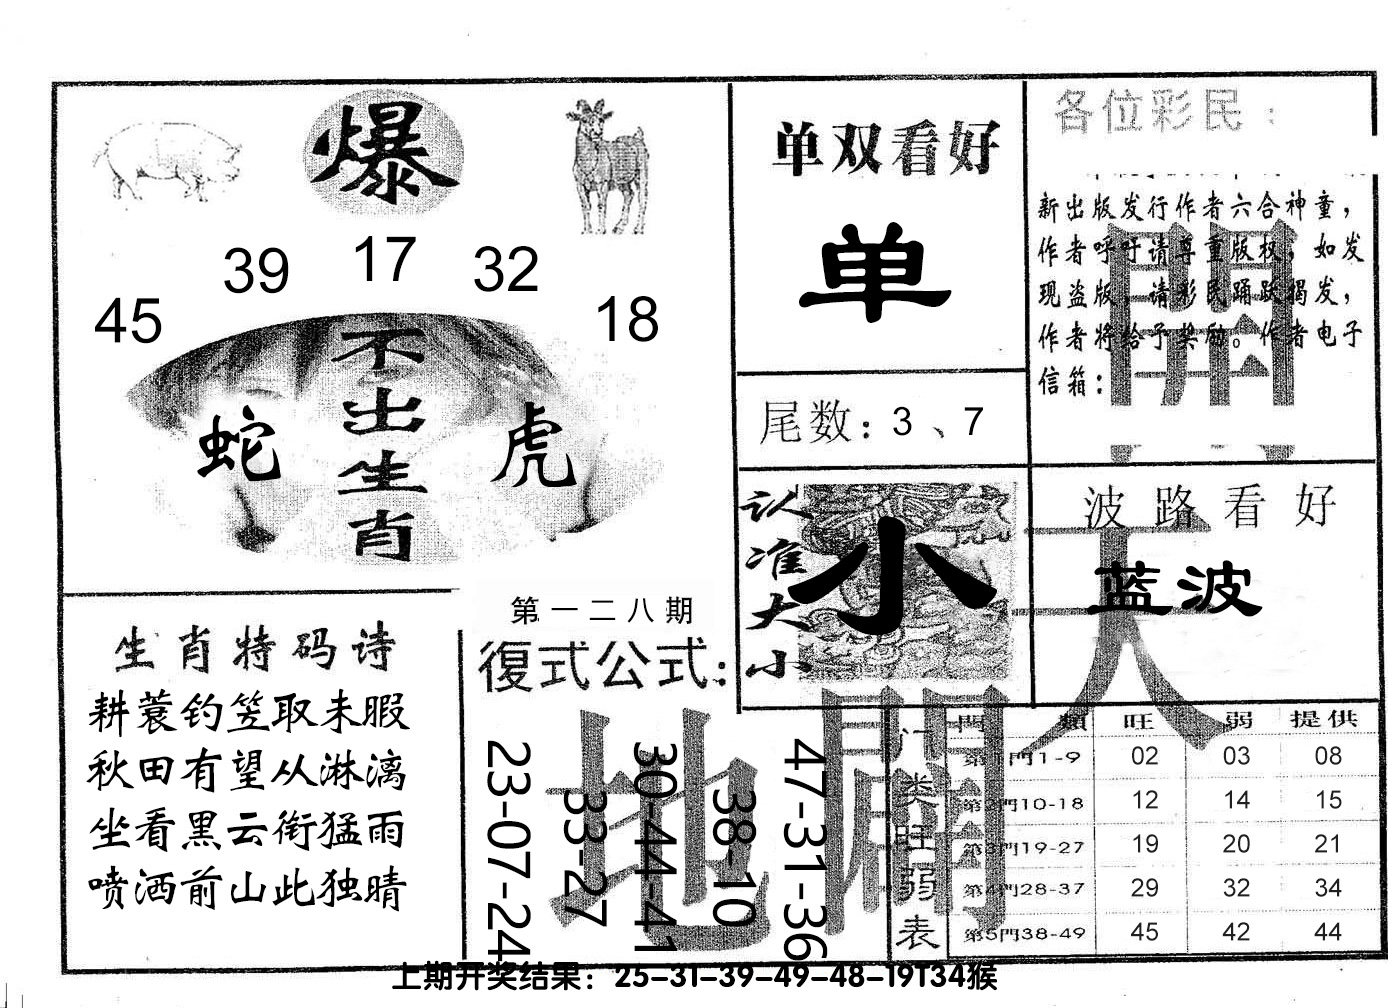 爆
45
39
17
32
18
不出生肖
蛇
虎
生肖特码诗
耕蓑钓笠取未暇
秋田有望从淋漓
坐看黑云衔猛雨
喷洒前山此独晴
第一二八期
復式公式:
23-07-24
33-27
30-44-41
38-10
47-31-36
单双看好
单
尾数:3、7
认准大小
小
各位彩民:
新出版发行作者六合神童,
作者呼吁请尊重版权,如发
现盗版,请彩民踊跃揭发,
作者将给予奖励。作者电子
信箱:
波路看好
蓝波
天
地
門類 旺 弱 提供
门类旺弱表
第1門1-9 02 03 08
第2門10-18 12 14 15
第3門19-27 19 20 21
第4門28-37 29 32 34
第5門38-49 45 42 44
上期开奖结果:25-31-39-49-48-19T34猴